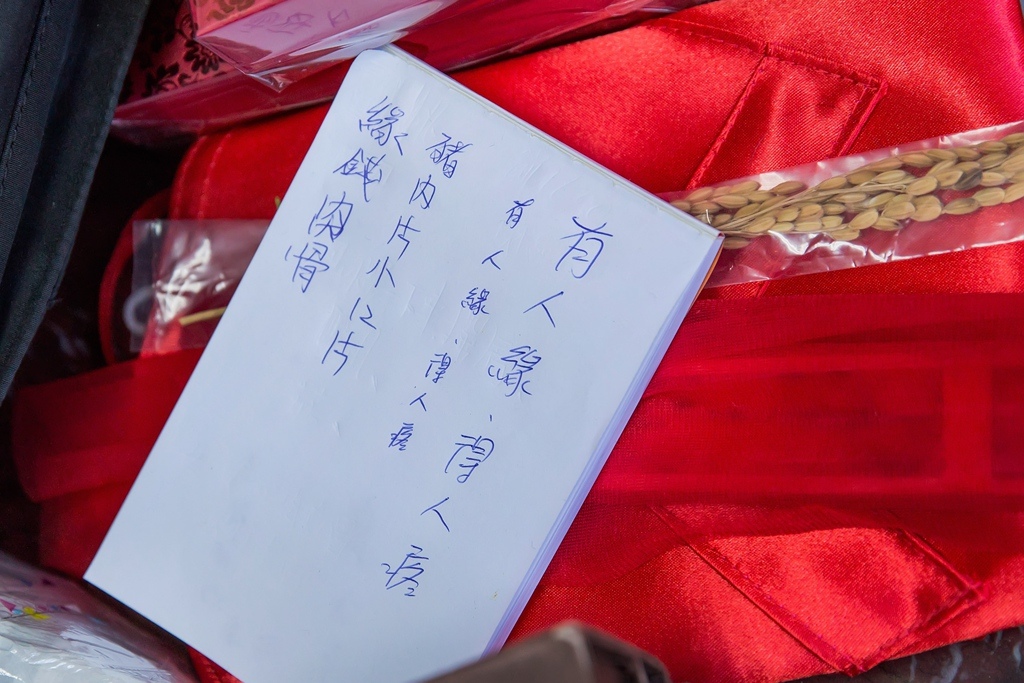 有人緣、得人疼
有人緣、得人疼
豬肉片小12片
緣錢肉骨